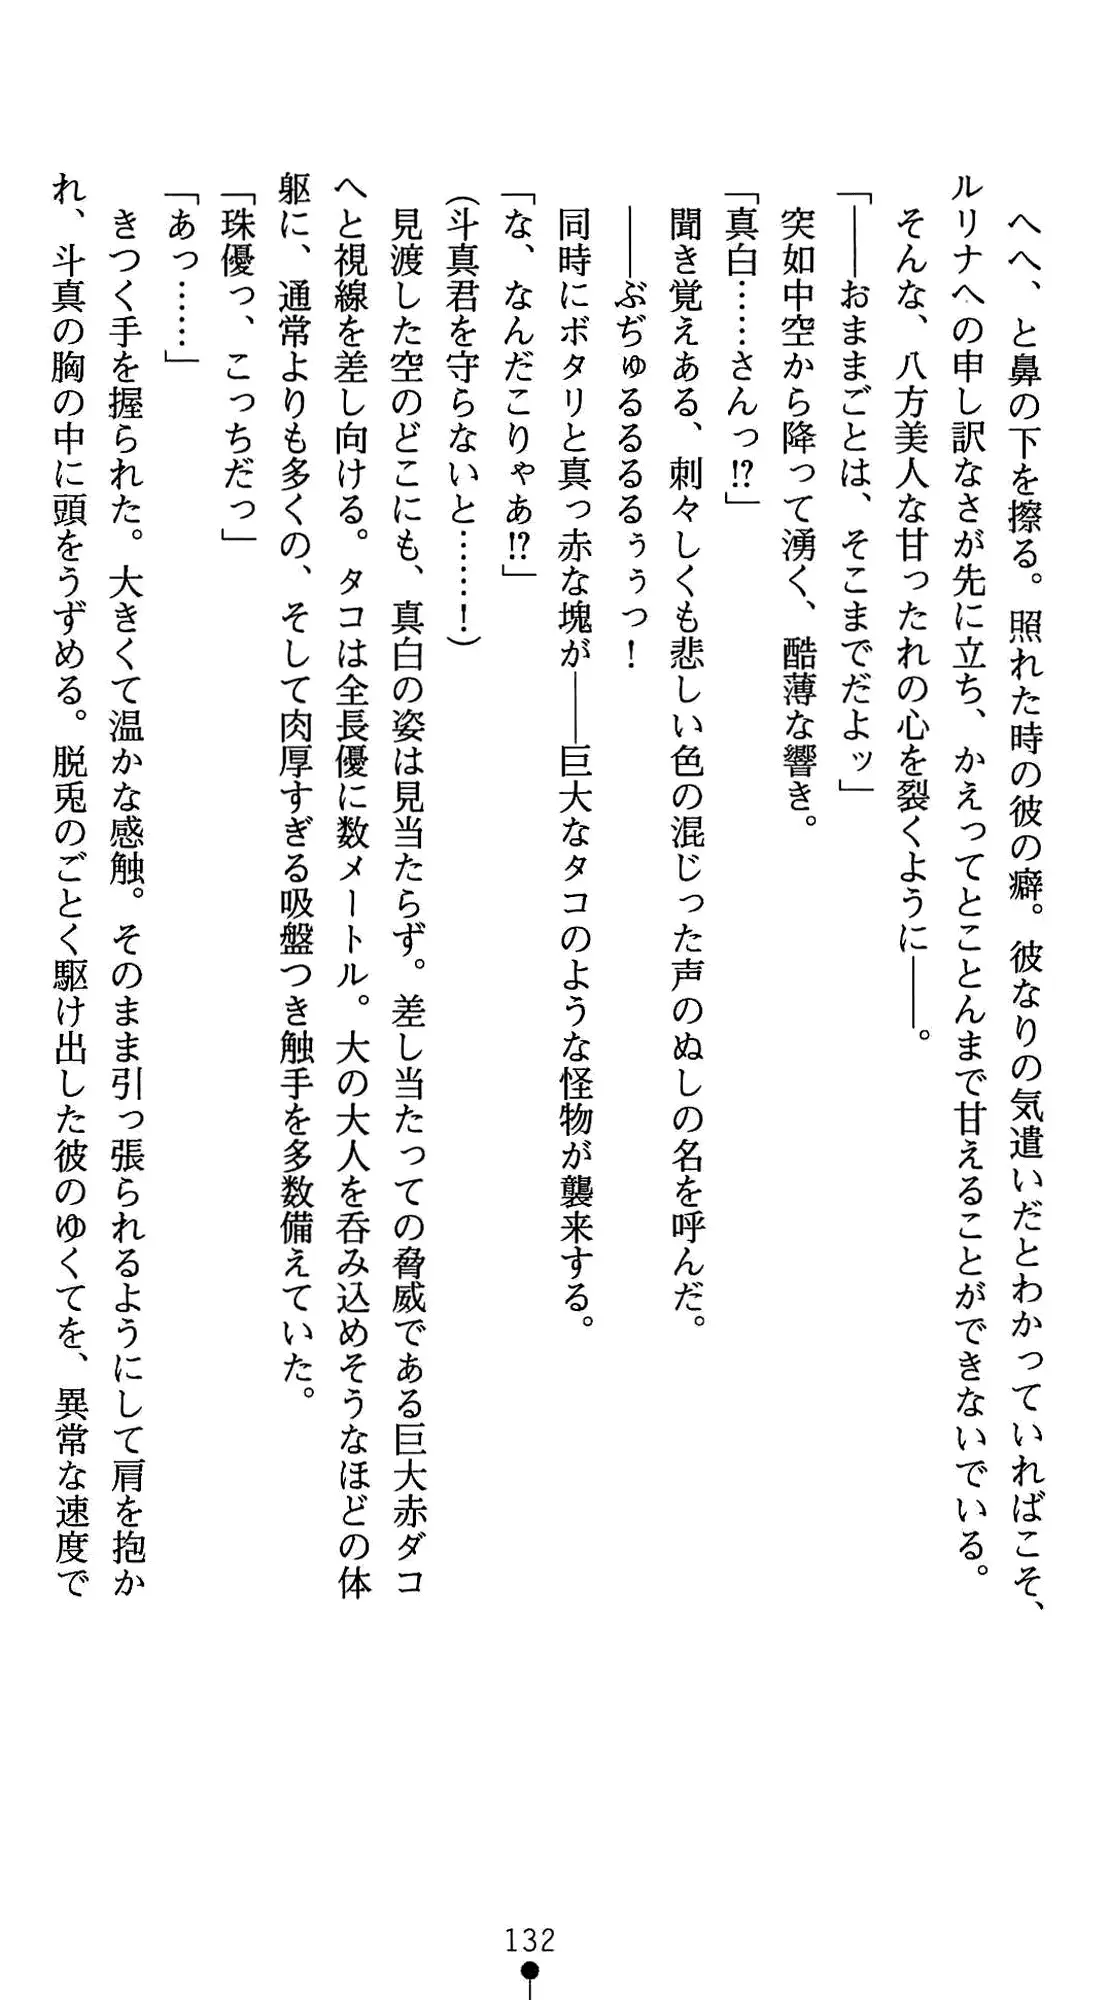 へへ、と鼻の下を擦る。照れた時の彼の癖。彼なりの気遣いだとわかっていればこそ、
ルリナへの申し訳なさが先に立ち、かえってとことんまで甘えることができないでいる。
そんな、八方美人な甘ったれの心を裂くように――。
「――おままごとは、そこまでだよッ」
突如中空から降って湧く、酷薄な響き。
「真白……さんっ!?」
聞き覚えある、刺々しくも悲しい色の混じった声のぬしの名を呼んだ。
――ぶぢゅるるるるぅぅっ！
同時にボタリと真っ赤な塊が――巨大なタコのような怪物が襲来する。
「な、なんだこりゃあ!?」
(斗真君を守らないと……！)
見渡した空のどこにも、真白の姿は見当たらず。差し当たっての脅威である巨大赤ダコ
へと視線を差し向ける。タコは全長優に数メートル。大の大人を呑み込めそうなほどの体
躯に、通常よりも多くの、そして肉厚すぎる吸盤つき触手を多数備えていた。
「珠優っ、こっちだっ」
「あっ……」
きつく手を握られた。大きくて温かな感触。そのまま引っ張られるようにして肩を抱か
れ、斗真の胸の中に頭をうずめる。脱兎のごとく駆け出した彼のゆくてを、異常な速度で
132